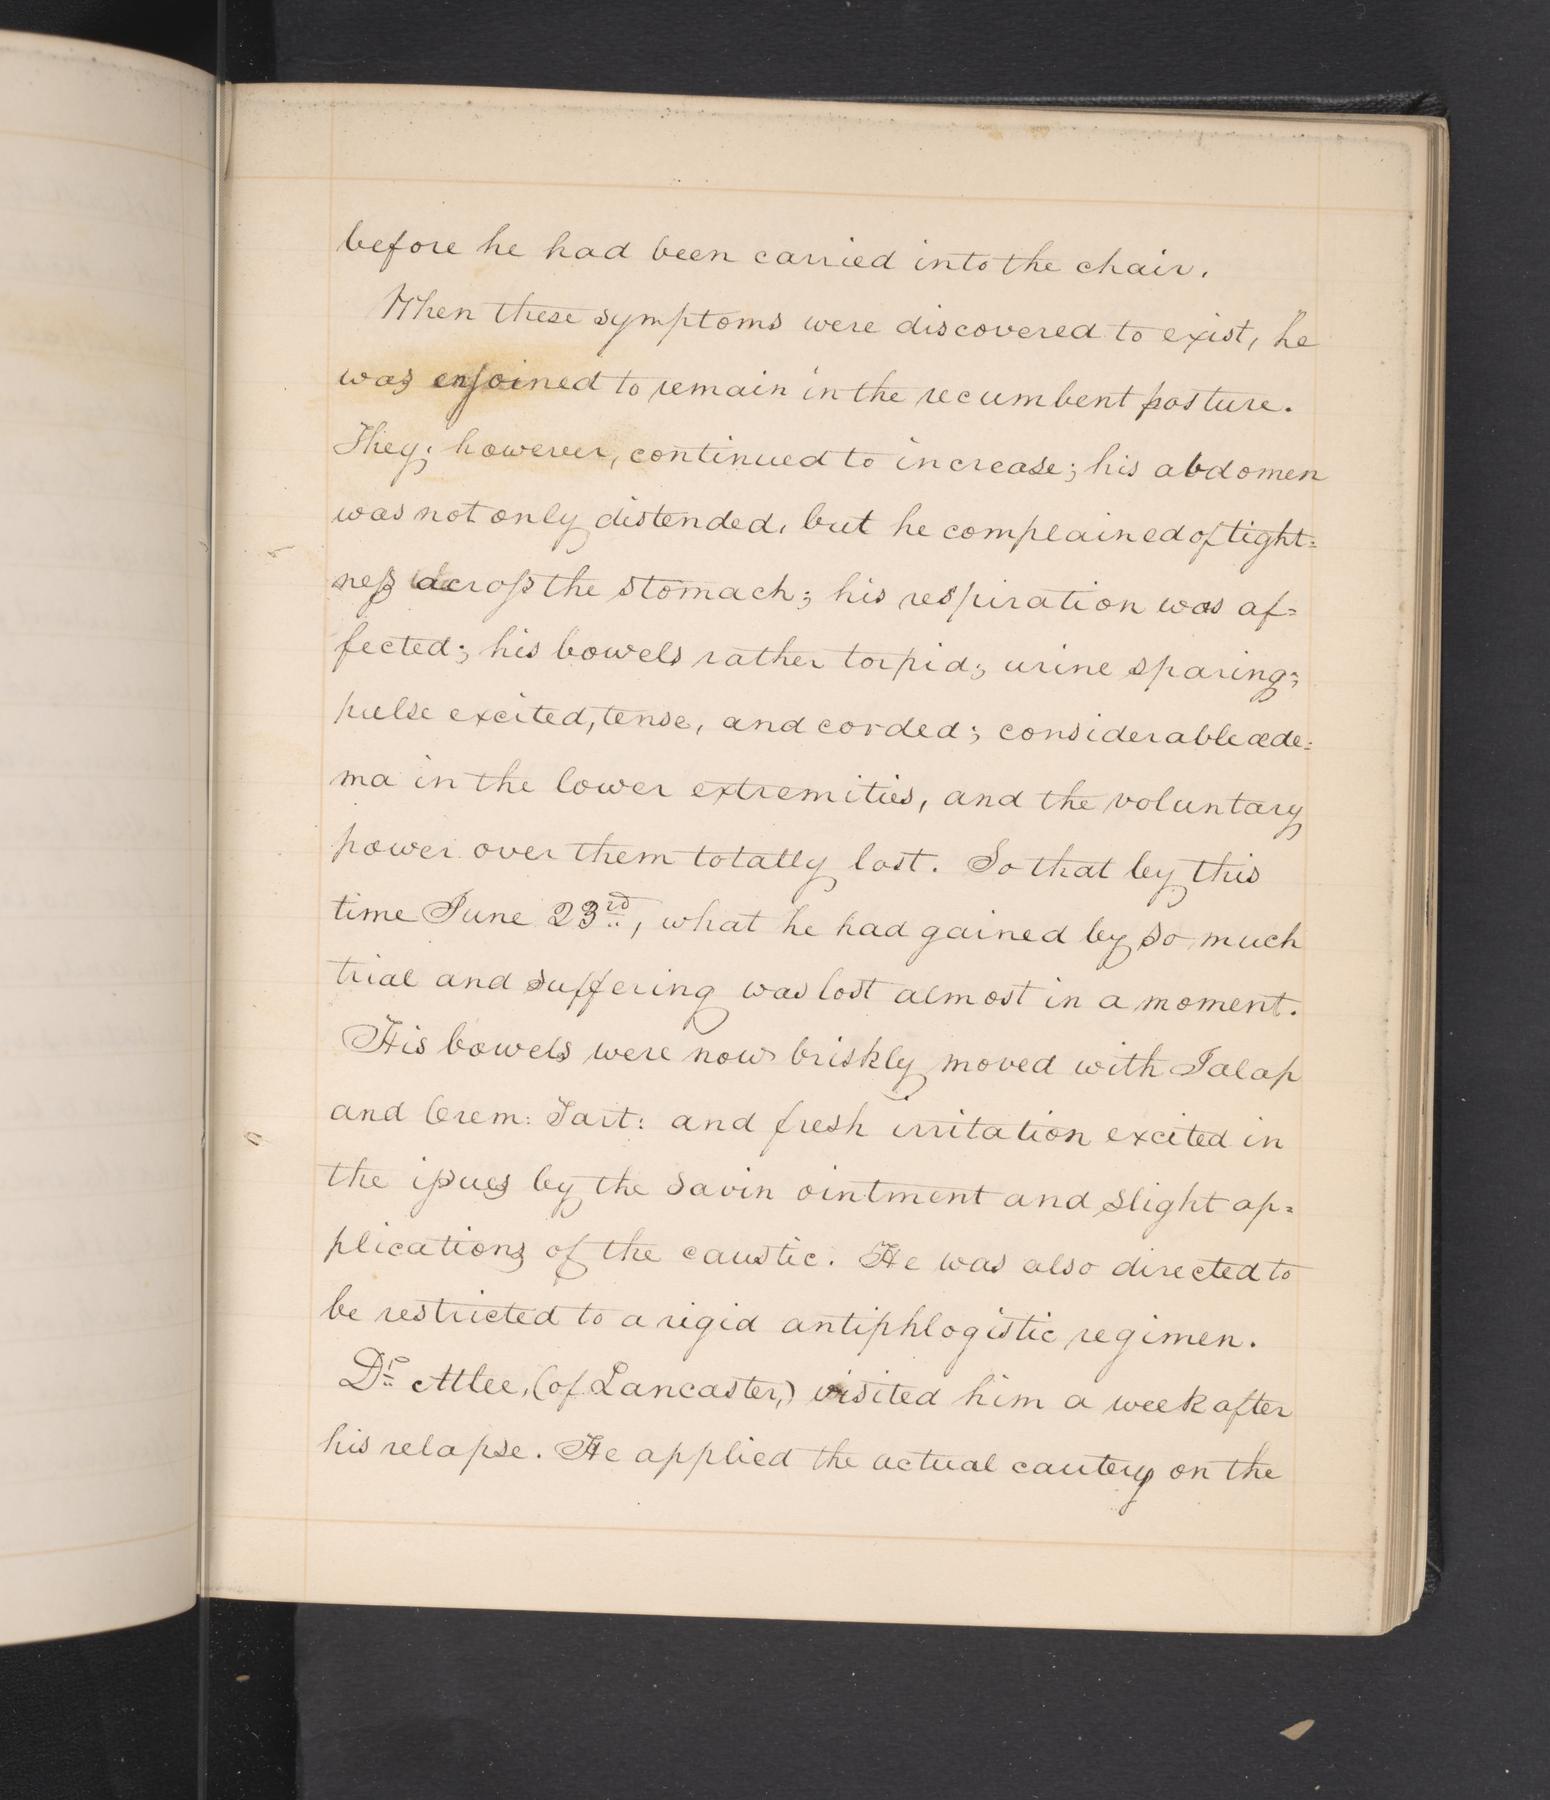 before he had been carried into the chair.
When these symptoms were discovered to exist, he
was enjoined to remain in the recumbent posture.
They; however, continued to increase; his abdomen
was not only distended, but he complained of tight=
ness across the stomach; his respiration was af=
fected; his bowels rather torpid; urine sparing;
pulse excited, tense, and corded; considerable œde=
ma in the lower extremities, and the voluntary
power over them totally lost. So that by this
time June 23rd, what he had gained by so much
trial and suffering was lost almost in a moment.
His bowels were now briskly moved with Jalap
and Crem: Tart: and fresh irritation excited in
the issues by the savin ointment and slight ap=
plications of the caustic. He was also directed to
be restricted to a rigid antiphlogistic regimen.
Dr Atlee, (of Lancaster,) visited him a week after
his relapse. He applied the actual cautery on the